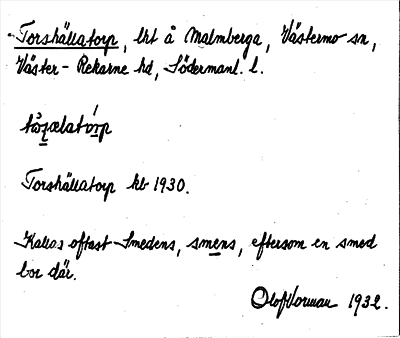 Torshällatorp, lht å Malmberga, Västermo sn,
Väster-Rekarne hd, Södermanl. l.
tåʂælatórp
Torshällatorp kb 1930.
Kallas oftast Smedens, smens, eftersom en smed
bor där.
Olof Norman 1932.